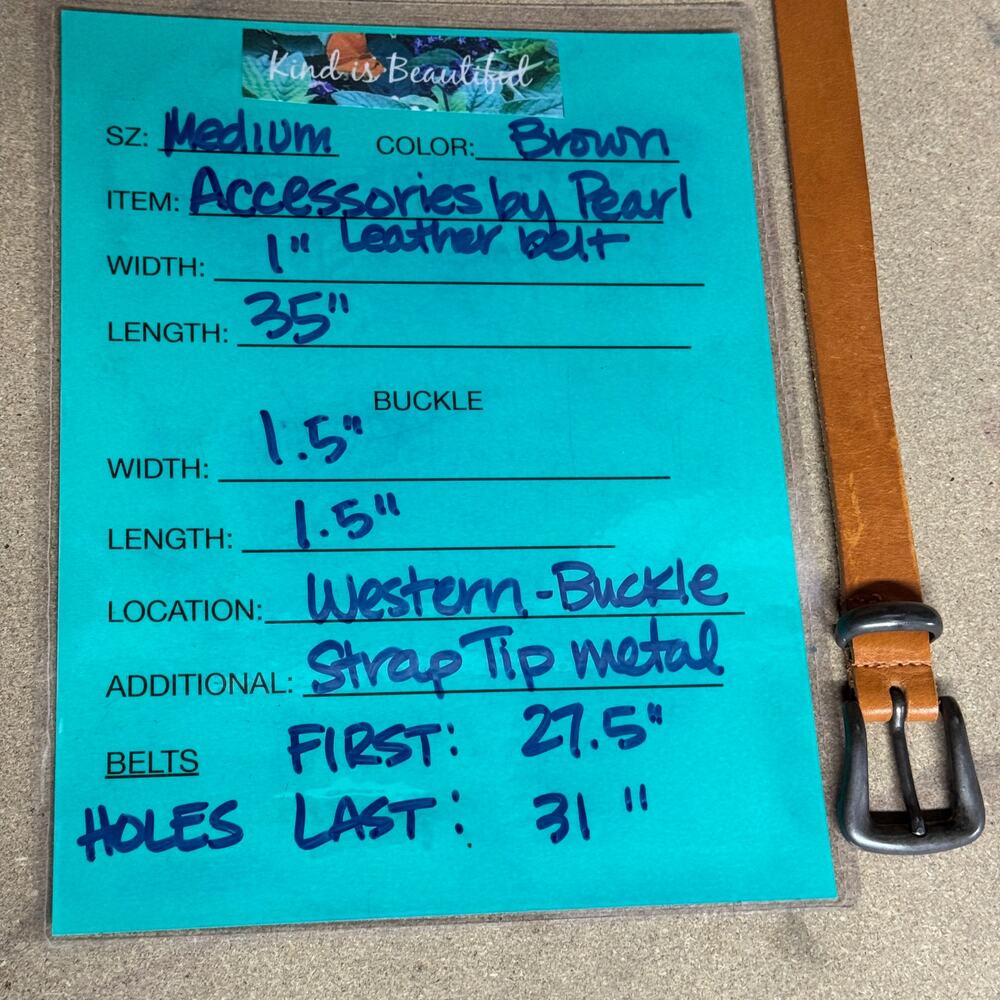 Kind is Beautiful
SZ: Medium COLOR: Brown
ITEM: Accessories by Pearl
Leather belt
WIDTH: 1"
LENGTH: 35"
BUCKLE
WIDTH: 1.5"
LENGTH: 1.5"
LOCATION: Western-Buckle
ADDITIONAL: Strap Tip metal
BELTS FIRST: 27.5"
HOLES LAST: 31"